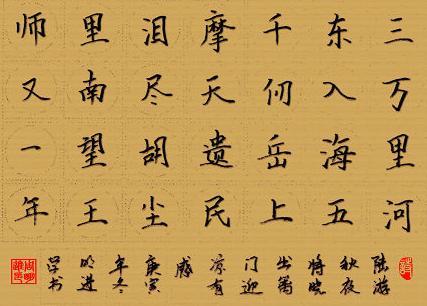 三万里河
东入海五
千仞岳上
摩天遗民
泪尽胡尘
里南望王
师又一年
陆游
秋夜
将晓
出篱
门迎
凉有
感
庚寅
年冬
明进
学书